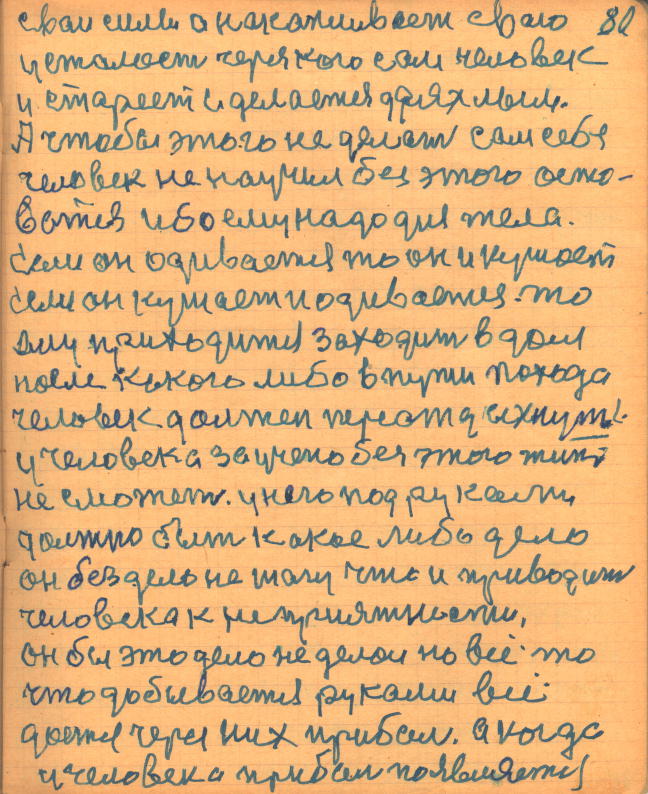 свои силы а накапливает свою 80
усталост через кого сам человек
и стареет и делается дряхлым.
А чтобы этого не делат сам себя
человек не научил без этого оста-
ватся ибо ему надо для тела.
Если он одивается то он и кушает
Если он кушает и одивается. то
ему приходится заходит в дом
после какого либо в пути похода
человек должен переотдыхнут.
у человека заучено без этого жит
не сможет. у него под руками
должно быт какое либо дело
он без дела не шагу что и приводит
человека к неприятности,
он бы это дело не делал но всё. то
что добывается руками всё.
дается через них прибыл. А когда
у человека прибыл появляется